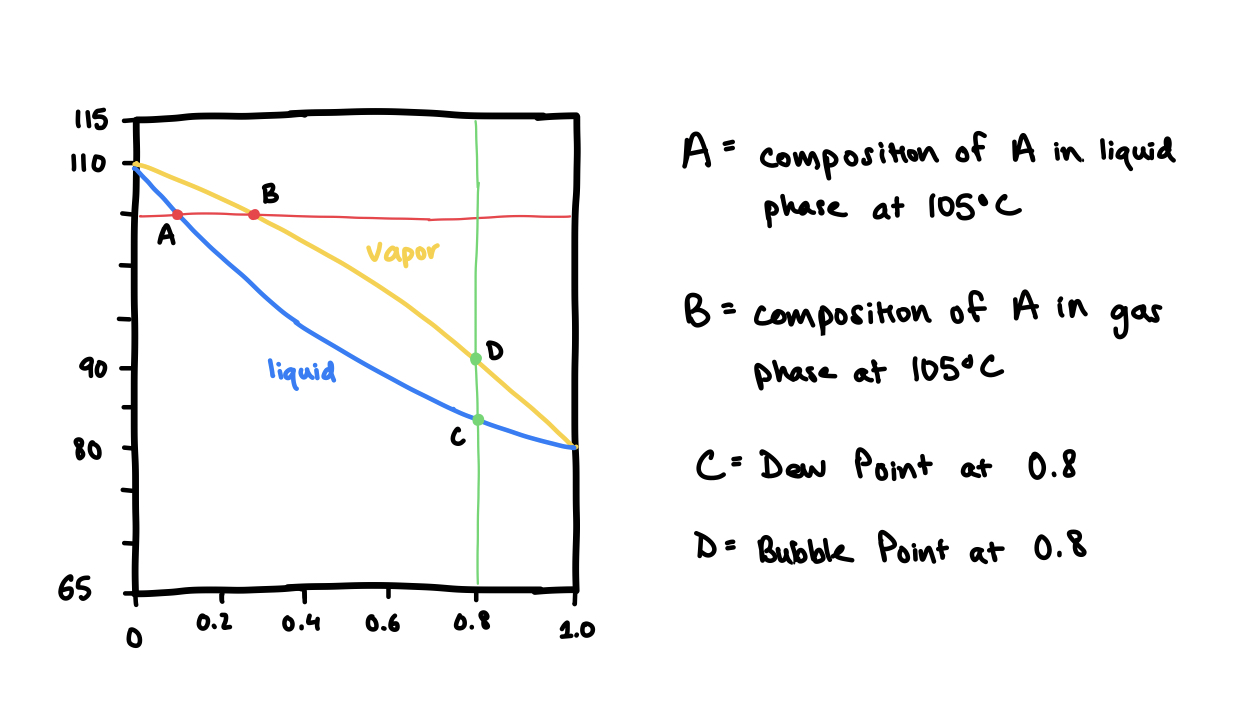 115
110
90
80
65
0
0.2
0.4
0.6
0.8
1.0
A
B
vapor
liquid
D
C
A = composition of A in liquid
phase at 105°C
B = composition of A in gas
phase at 105°C
C = Dew Point at 0.8
D = Bubble Point at 0.8